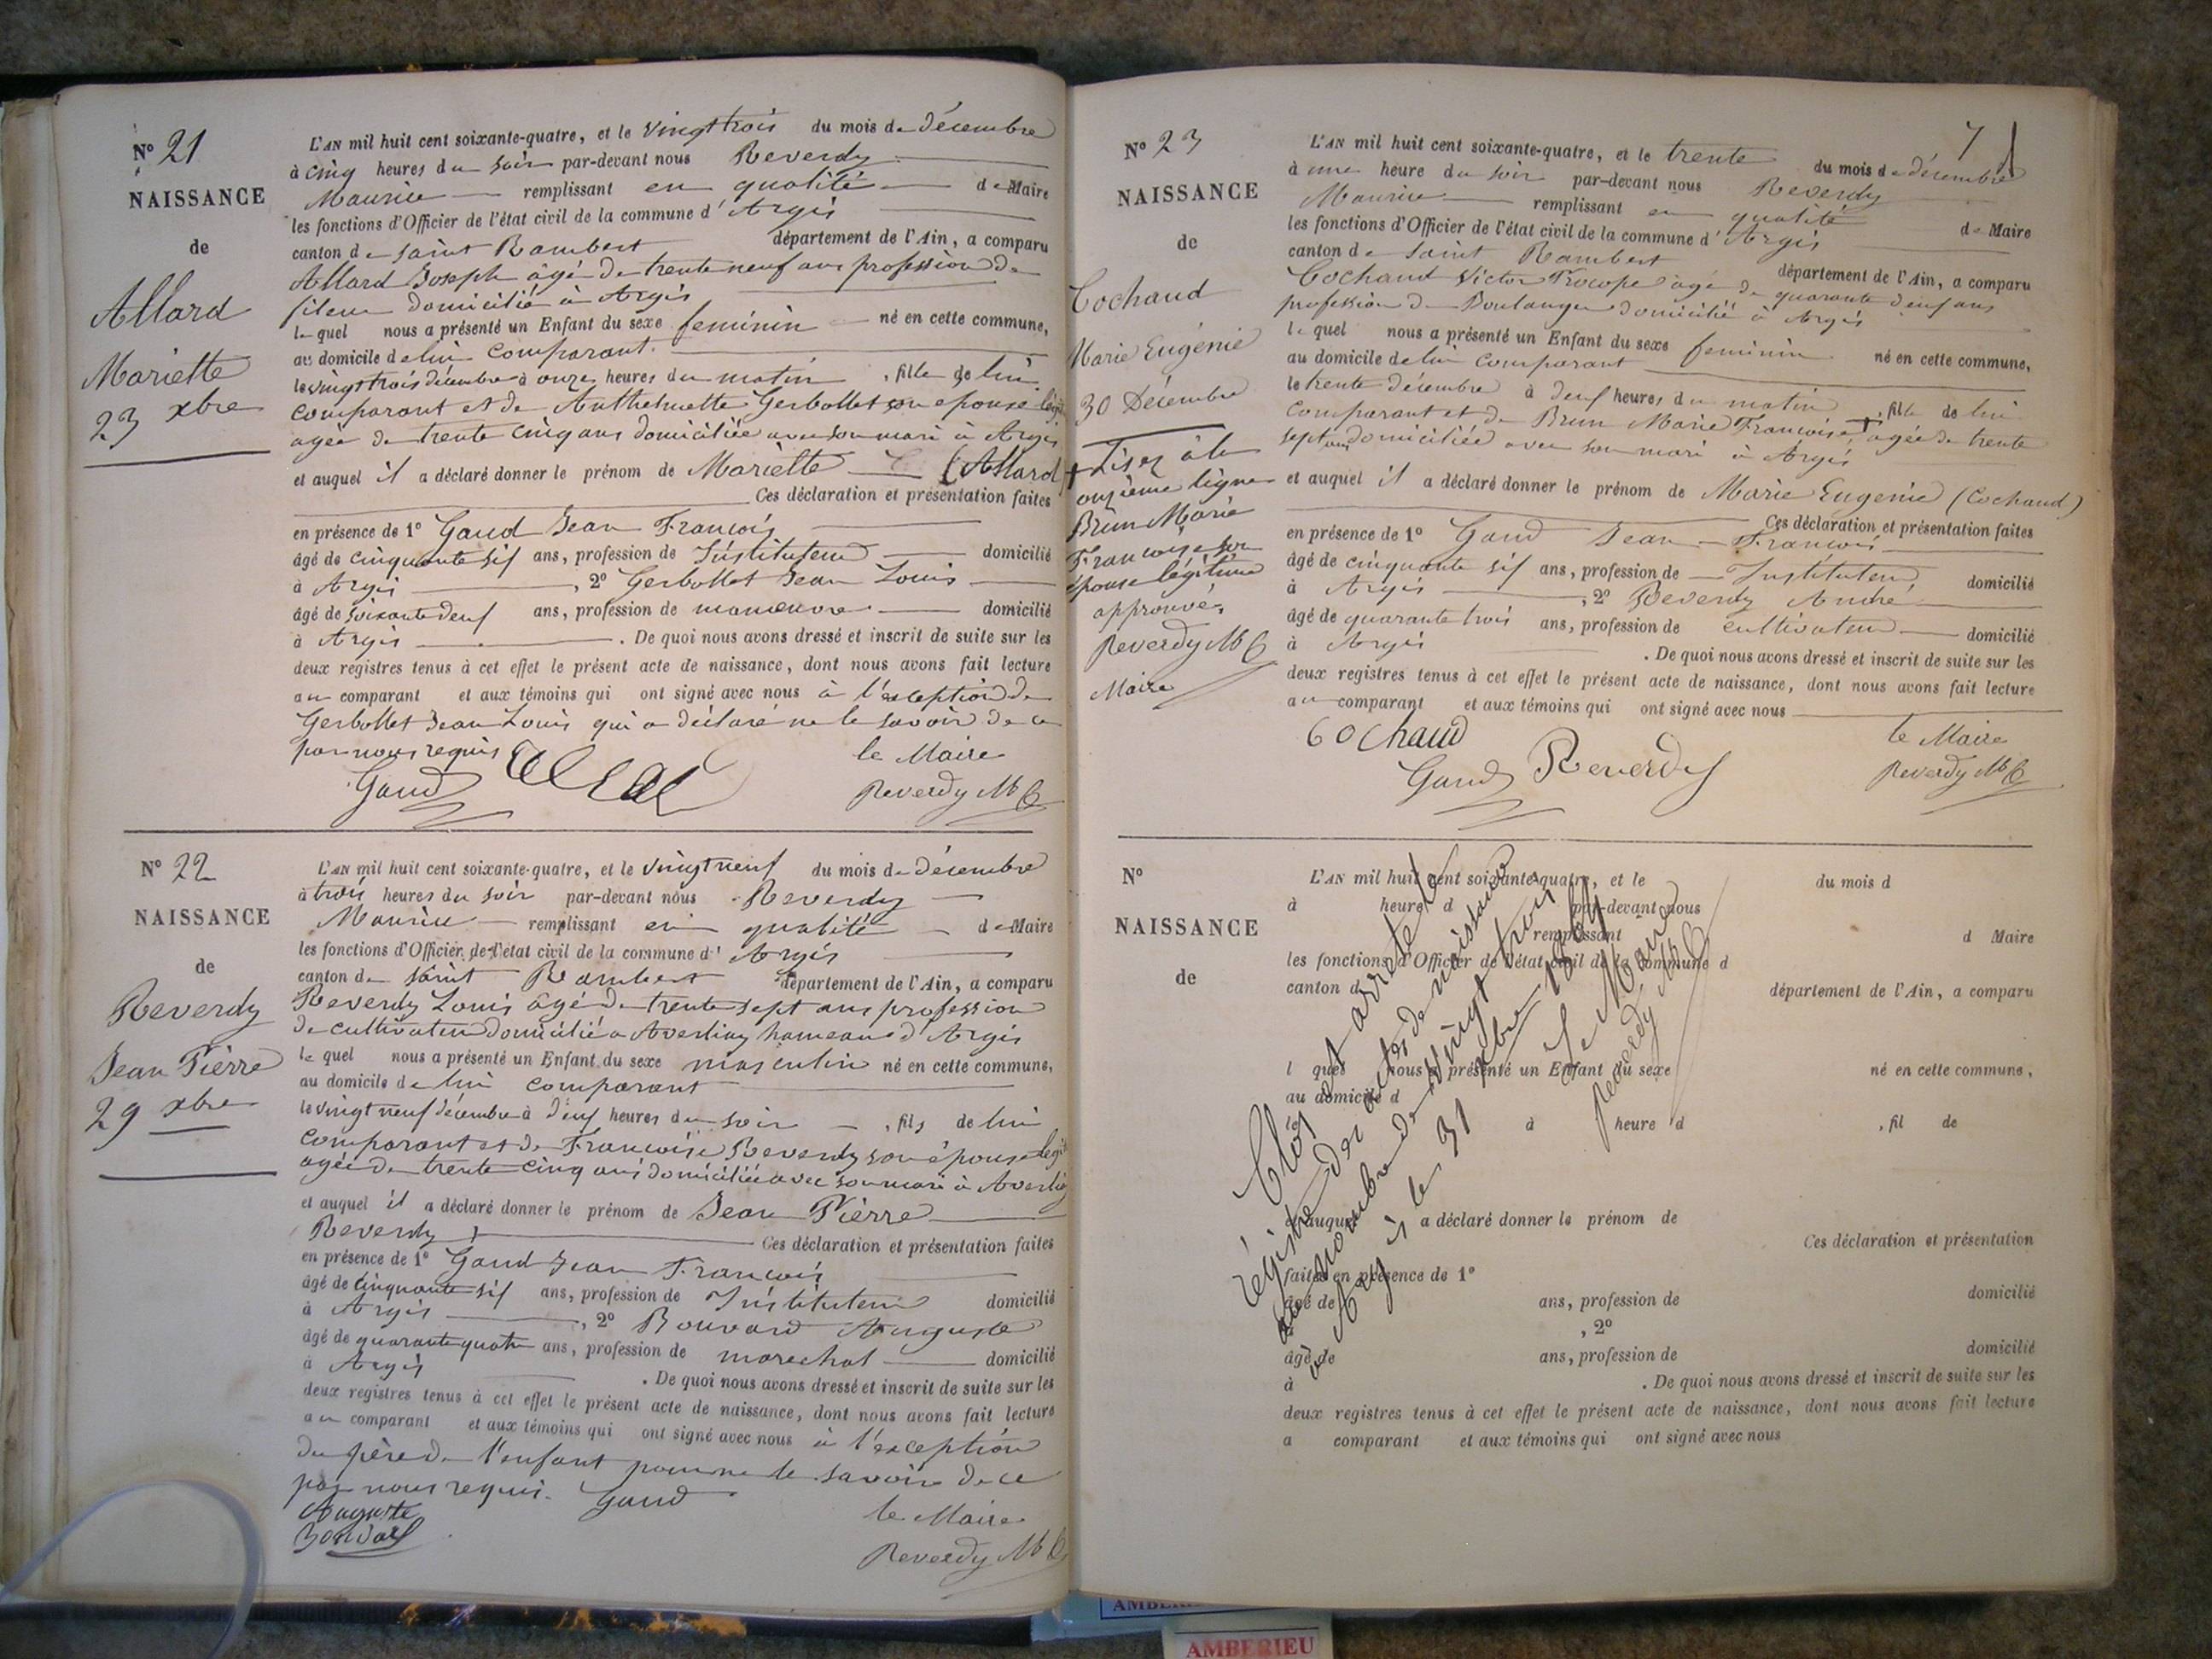 N° 21
NAISSANCE
de
Allard
Mariette
23 xbre
L'AN mil huit cent soixante-quatre, et le vingt trois du mois de décembre
à cinq heures du soir par-devant nous Reverdy
Maurice remplissant en qualité de Maire
les fonctions d'Officier de l'état civil de la commune d'Argis
canton de saint Rambert département de l'Ain, a comparu
Allard Joseph âgé de trente neuf ans profession de
fileur domicilié à Argis
lequel nous a présenté un Enfant du sexe feminin né en cette commune,
au domicile de lui comparant.
le vingt trois décembre à onze heures du matin, fille de lui
comparant et de Anthelmette Gerbollet son épouse légit
agée de trente cinq ans domiciliée avec son mari à Argis
et auquel il a déclaré donner le prénom de Mariette (Allard)
Ces déclaration et présentation faites
en présence de 1° Gaud Jean François
âgé de cinquante six ans, profession de Instituteur domicilié
à Argis, 2° Gerbollet Jean Louis
âgé de soixante deux ans, profession de manoeuvre domicilié
à Argis. De quoi nous avons dressé et inscrit de suite sur les
deux registres tenus à cet effet le présent acte de naissance, dont nous avons fait lecture
au comparant et aux témoins qui ont signé avec nous à l'exception de
Gerbollet Jean Louis qui a déclaré ne le savoir de ce
par nous requis
le Maire
Gaud
Reverdy
N° 22
NAISSANCE
de
Reverdy
Jean Pierre
29 xbre
L'AN mil huit cent soixante-quatre, et le vingt neuf du mois de décembre
à trois heures du soir par-devant nous Reverdy
Maurice remplissant en qualité de Maire
les fonctions d'Officier de l'état civil de la commune d'Argis
canton de saint Rambert département de l'Ain, a comparu
Reverdy Louis âgé de trente sept ans profession
de cultivateur domicilié à Averliaz hameau d'Argis
lequel nous a présenté un Enfant du sexe masculin né en cette commune,
au domicile de lui comparant
le vingt neuf décembre à deux heures du soir, fils de lui
comparant et de Françoise Reverdy son épouse legit
agée de trente cinq ans domiciliée avec son mari à
et auquel il a déclaré donner le prénom de Jean Pierre
Reverdy Ces déclaration et présentation faites
en présence de 1° Gaud Jean François
âgé de cinquante six ans, profession de Instituteur domicilié
à Argis, 2° Bouvard Auguste
âgé de quarante quatre ans, profession de marechal domicilié
à Argis. De quoi nous avons dressé et inscrit de suite sur les
deux registres tenus à cet effet le présent acte de naissance, dont nous avons fait lecture
au comparant et aux témoins qui ont signé avec nous à l'exception
du père de l'enfant pour ne le savoir de ce
par nous requis. Gaud
Auguste le Maire
Bouvard
Reverdy
7
N° 23
NAISSANCE
de
Cochaud
Marie Eugénie
30 Décembre
+ Lisez à la
onzième ligne
Brun Marie
Françoise son
épouse légitime
approuvé.
Reverdy
Maire
L'AN mil huit cent soixante-quatre, et le trente du mois de décembre
à une heure du soir par-devant nous Reverdy
Maurice remplissant en qualité de Maire
les fonctions d'Officier de l'état civil de la commune d'Argis
canton de saint Rambert département de l'Ain, a comparu
Cochaud Victor Procope âgé de quarante deux ans
profession de Boulanger domicilié à Argis
lequel nous a présenté un Enfant du sexe feminin né en cette commune,
au domicile de lui comparant
le trente décembre à deux heures du matin, fille de lui
comparant et de Brun Marie Françoise + agée de trente
sept ans domiciliée avec son mari à Argis
et auquel il a déclaré donner le prénom de Marie Eugenie (Cochaud)
Ces déclaration et présentation faites
en présence de 1° Gaud Jean François
âgé de cinquante six ans, profession de Instituteur domicilié
à Argis, 2° Reverdy André
âgé de quarante trois ans, profession de cultivateur domicilié
à Argis. De quoi nous avons dressé et inscrit de suite sur les
deux registres tenus à cet effet le présent acte de naissance, dont nous avons fait lecture
au comparant et aux témoins qui ont signé avec nous
Cochaud le Maire
Gaud Reverdy Reverdy
N°
NAISSANCE
de
L'AN mil huit cent soixante-quatre, et le du mois d
à heure d par-devant nous
remplissant d Maire
les fonctions d'Officier de l'état civil de la commune d
canton d département de l'Ain, a comparu
l quel nous a présenté un Enfant du sexe né en cette commune,
au domicile d
le à heure d, fil de
et auquel a déclaré donner le prénom de
Ces déclaration et présentation
faites en présence de 1°
âgé de ans, profession de domicilié
à, 2°
âgé de ans, profession de domicilié
à. De quoi nous avons dressé et inscrit de suite sur les
deux registres tenus à cet effet le présent acte de naissance, dont nous avons fait lecture
a comparant et aux témoins qui ont signé avec nous
Clos et arrêté le
régistre des actes de naissances
au nombre de vingt trois
à Argis le 31 xbre 1864
Le Maire
Reverdy
AMBERIEU